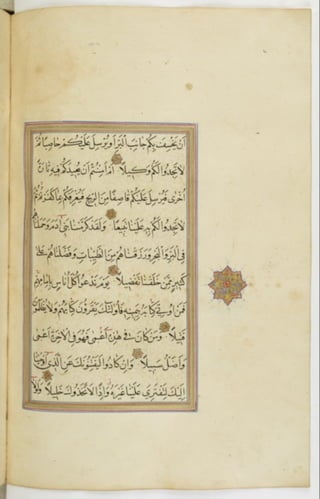 اَنْ يَخْسِفَ بِكُمْ جَانِبَ الْبَرِّ اَوْ يُرْسِلَ عَلَيْكُمْ حَاصِبًا ثُمَّ
لَا تَجِدُوا لَكُمْ وَكِيلًا اَمْ اَمِنْتُمْ اَنْ يُعِيدَكُمْ فِيهِ تَارَةً
اُخْرٰى فَيُرْسِلَ عَلَيْكُمْ قَاصِفًا مِنَ الرِّيحِ فَيُغْرِقَكُمْ بِمَا كَفَرْتُمْ ثُمَّ
لَا تَجِدُوا لَكُمْ عَلَيْنَا بِهِ تَبِيعًا وَلَقَدْ كَرَّمْنَا بَنِي اٰدَمَ وَحَمَلْنَاهُمْ
فِي الْبَرِّ وَالْبَحْرِ وَرَزَقْنَاهُمْ مِنَ الطَّيِّبَاتِ وَفَضَّلْنَاهُمْ عَلٰى
كَثِيرٍ مِمَّنْ خَلَقْنَا تَفْضِيلًا يَوْمَ نَدْعُوا كُلَّ اُنَاسٍ بِاِمَامِهِمْ
فَمَنْ اُوتِيَ كِتَابَهُ بِيَمِينِهِ فَاُولٰئِكَ يَقْرَؤُنَ كِتَابَهُمْ وَلَا يُظْلَمُونَ
فَتِيلًا وَمَنْ كَانَ فِي هٰذِهِ اَعْمٰى فَهُوَ فِي الْاٰخِرَةِ اَعْمٰى
وَاَضَلُّ سَبِيلًا وَاِنْ كَادُوا لَيَفْتِنُونَكَ عَنِ الَّذِي اَوْحَيْنَا
اِلَيْكَ لِتَفْتَرِيَ عَلَيْنَا غَيْرَهُ وَاِذًا لَاتَّخَذُوكَ خَلِيلًا وَلَوْلَا